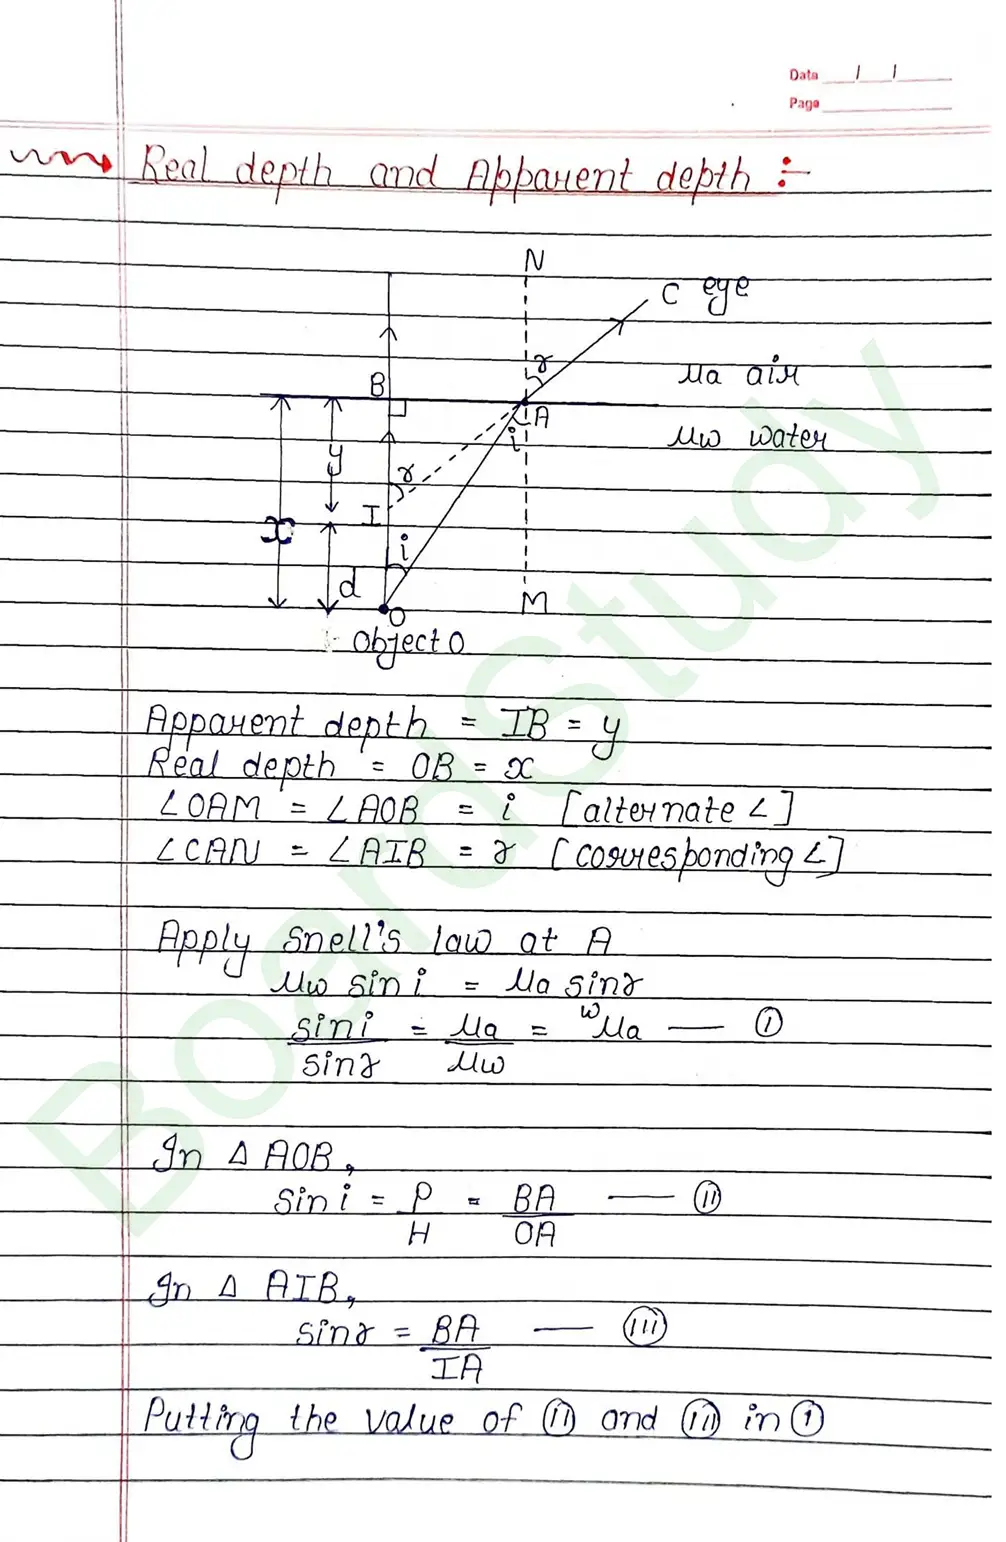 Date / /
Page
Real depth and Apparent depth :-
N
C eye
r
μa air
B
A
i
μw water
y
r
I
x
i
d
O
M
Object O
Apparent depth = IB = y
Real depth = OB = x
∠OAM = ∠AOB = i [alternate ∠]
∠CAN = ∠AIB = r [corresponding ∠]
Apply Snell's law at A
μw sin i = μa sinr
sin i / sinr = μa / μw = ʷμa — (i)
In Δ AOB,
sin i = P / H = BA / OA — (ii)
In Δ AIB,
sinr = BA / IA — (iii)
Putting the value of (ii) and (iii) in (i)
BoardStudy